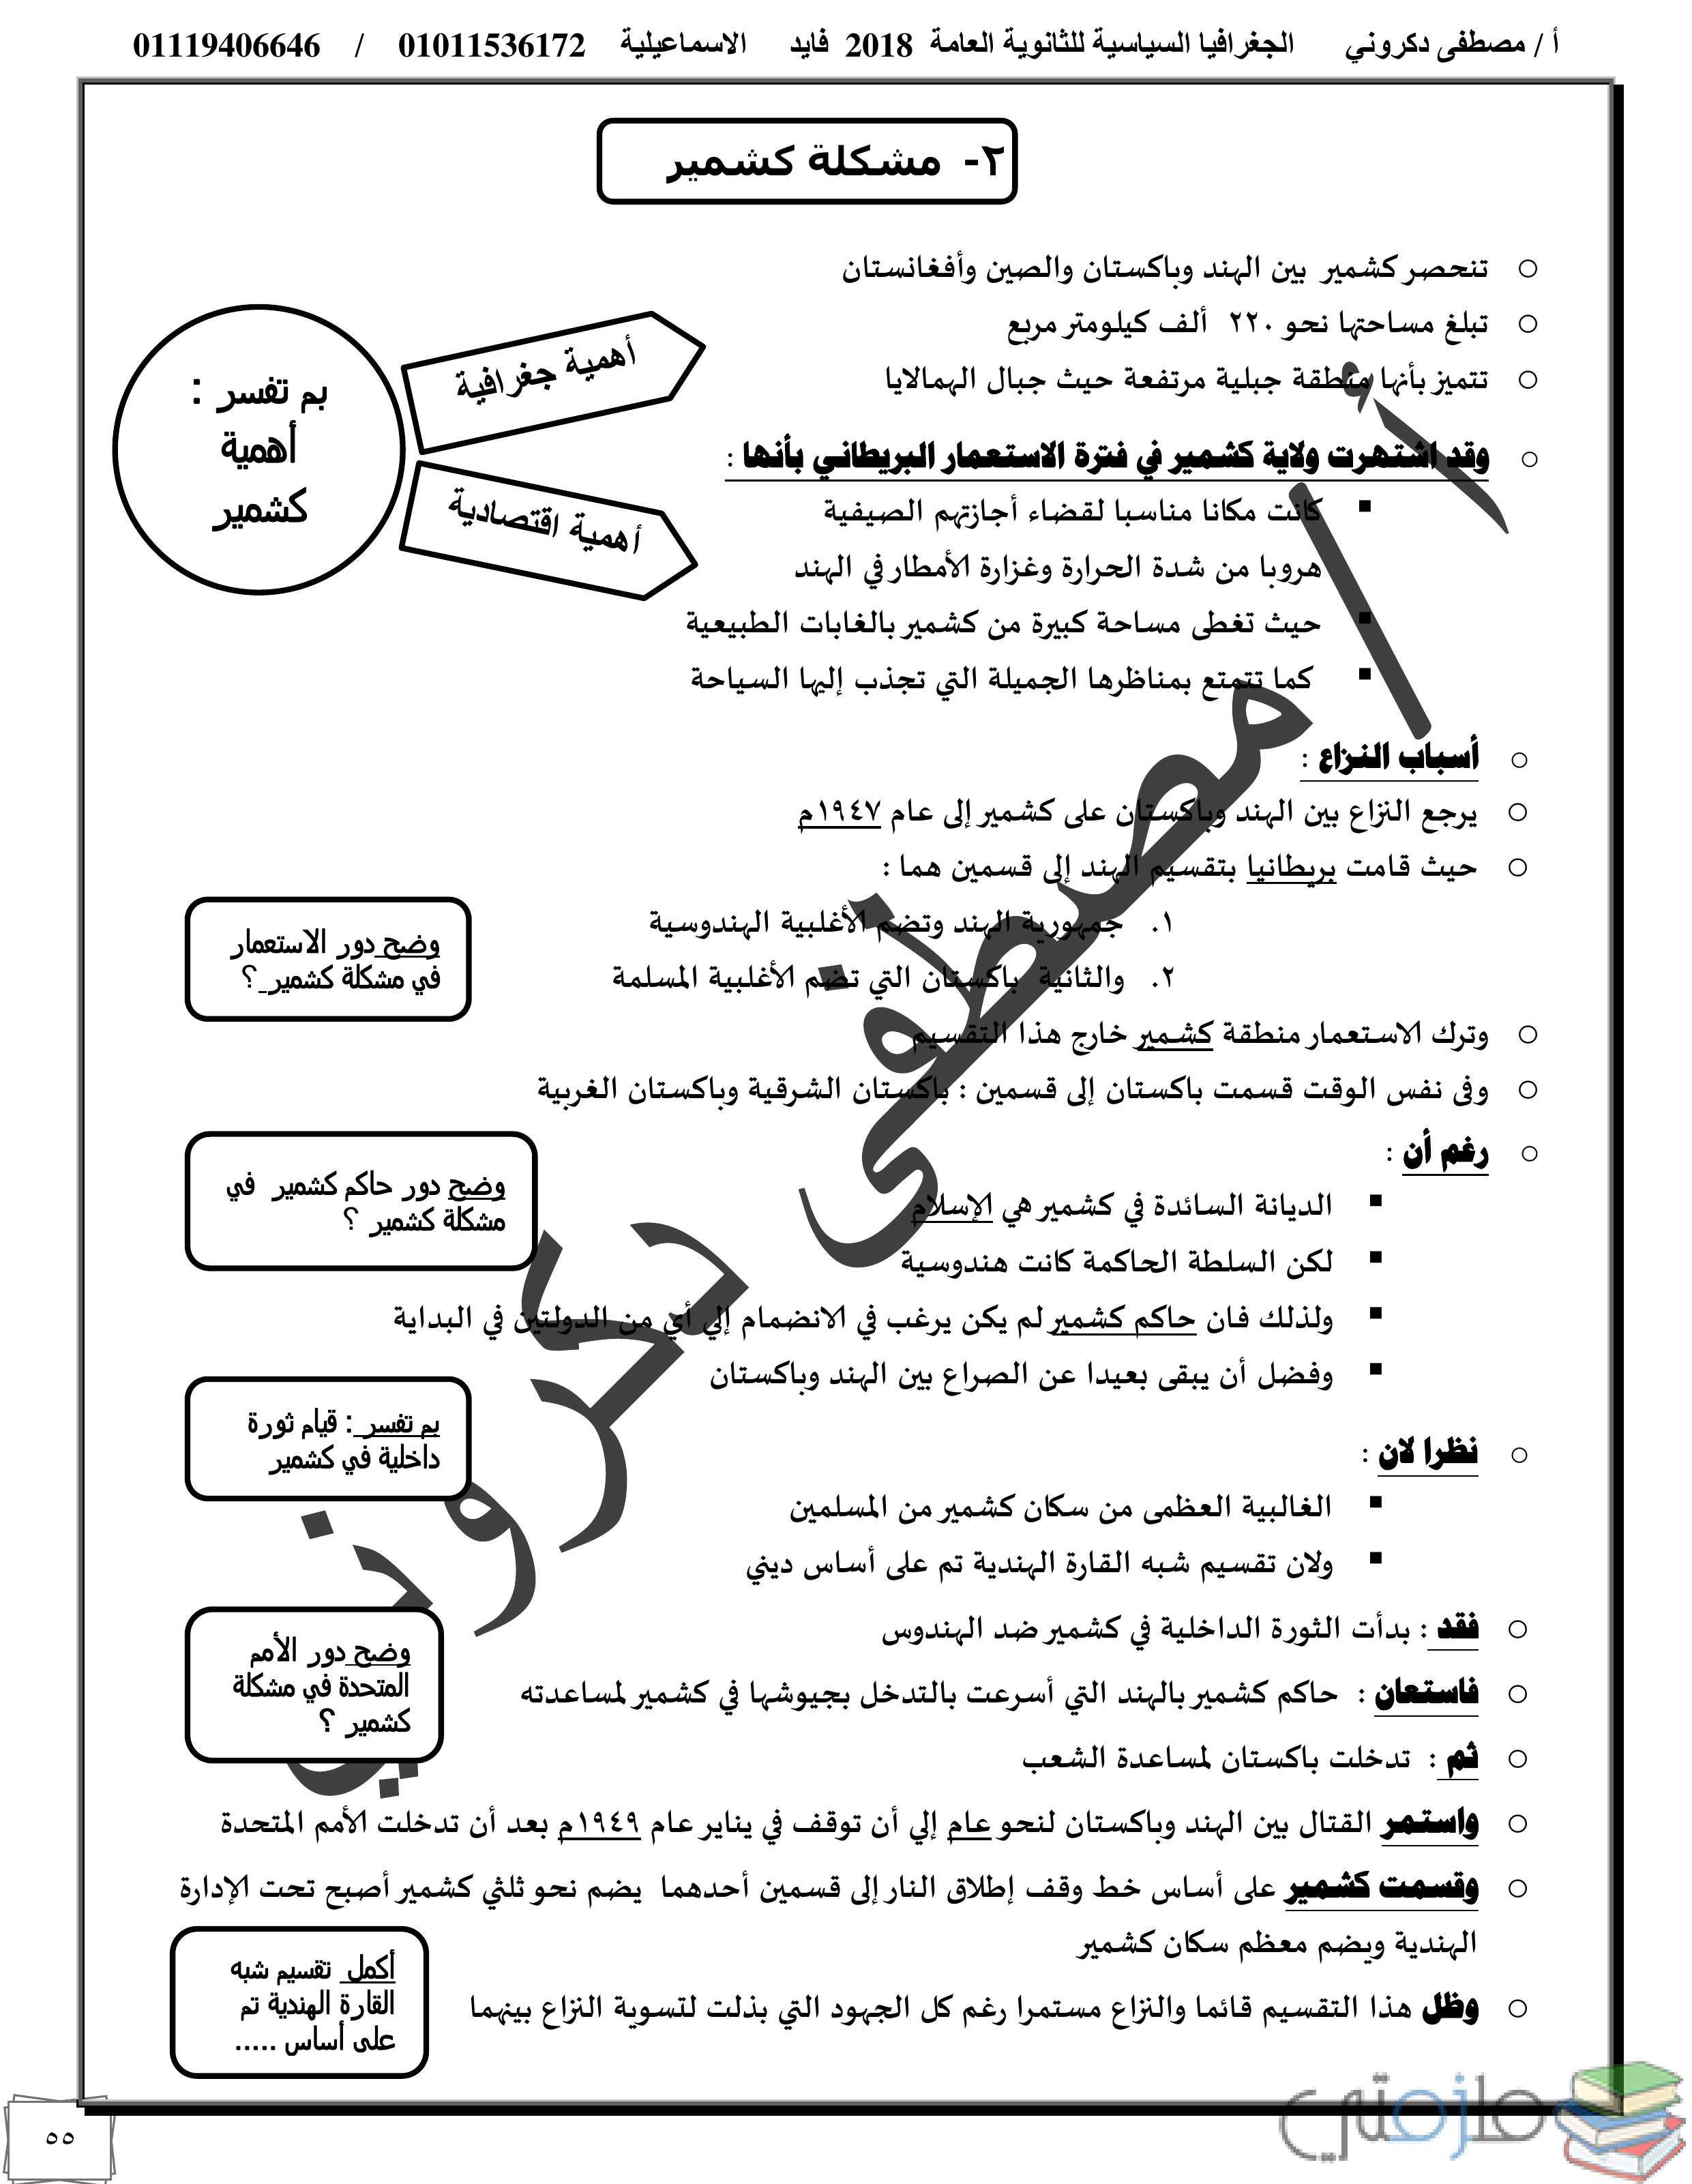 أ / مصطفى دكروني الجغرافيا السياسية للثانوية العامة 2018 فايد الاسماعيلية 01011536172 / 01119406646
٢- مشكلة كشمير
تنحصر كشمير بين الهند وباكستان والصين وأفغانستان
تبلغ مساحتها نحو ٢٢٠ ألف كيلومتر مربع
تتميز بأنها منطقة جبلية مرتفعة حيث جبال الهمالايا
بم تفسر :
أهمية
كشمير
أهمية جغرافية
أهمية اقتصادية
وقد اشتهرت ولاية كشمير في فترة الاستعمار البريطاني بأنها :
كانت مكانا مناسبا لقضاء أجازتهم الصيفية
هروبا من شدة الحرارة وغزارة الأمطار في الهند
حيث تغطى مساحة كبيرة من كشمير بالغابات الطبيعية
كما تتمتع بمناظرها الجميلة التي تجذب إليها السياحة
أسباب النزاع :
يرجع النزاع بين الهند وباكستان على كشمير إلى عام ١٩٤٧م
حيث قامت بريطانيا بتقسيم الهند إلى قسمين هما :
١. جمهورية الهند وتضم الأغلبية الهندوسية
٢. والثانية باكستان التي تضم الأغلبية المسلمة
وضح دور الاستعمار
في مشكلة كشمير ؟
وترك الاستعمار منطقة كشمير خارج هذا التقسيم
وفى نفس الوقت قسمت باكستان إلى قسمين : باكستان الشرقية وباكستان الغربية
رغم أن :
الديانة السائدة في كشمير هي الإسلام
لكن السلطة الحاكمة كانت هندوسية
ولذلك فان حاكم كشمير لم يكن يرغب في الانضمام إلي أي من الدولتين في البداية
وفضل أن يبقى بعيدا عن الصراع بين الهند وباكستان
وضح دور حاكم كشمير في
مشكلة كشمير ؟
نظرا لان :
الغالبية العظمى من سكان كشمير من المسلمين
ولان تقسيم شبه القارة الهندية تم على أساس ديني
بم تفسر : قيام ثورة
داخلية في كشمير
فقد : بدأت الثورة الداخلية في كشمير ضد الهندوس
فاستعان : حاكم كشمير بالهند التي أسرعت بالتدخل بجيوشها في كشمير لمساعدته
ثم : تدخلت باكستان لمساعدة الشعب
وضح دور الأمم
المتحدة في مشكلة
كشمير ؟
واستمر القتال بين الهند وباكستان لنحو عام إلي أن توقف في يناير عام ١٩٤٩م بعد أن تدخلت الأمم المتحدة
وقسمت كشمير على أساس خط وقف إطلاق النار إلى قسمين أحدهما يضم نحو ثلثي كشمير أصبح تحت الإدارة
الهندية ويضم معظم سكان كشمير
وظل هذا التقسيم قائما والنزاع مستمرا رغم كل الجهود التي بذلت لتسوية النزاع بينهما
أكمل تقسيم شبه
القارة الهندية تم
على أساس .....
أ / مصطفى دكروني
ملزمتي
٥٥